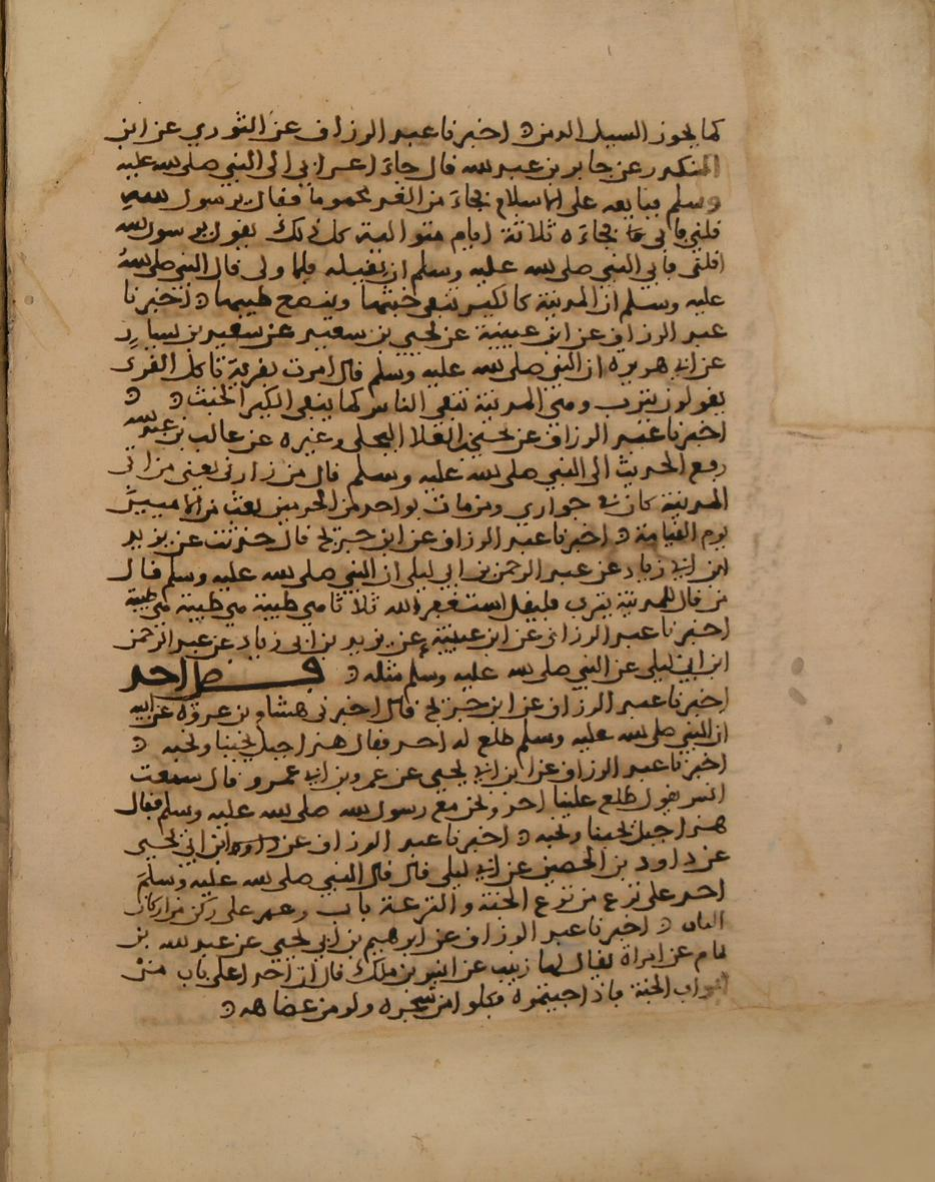 كما يجوز السيل الدمن اخبرنا عبد الرزاق عن الثوري عن ابن
المنكدر عن جابر بن عبد الله قال جاء اعرابي الى النبي صلى الله عليه
وسلم فبايعه على الاسلام فجاء من الغد محموما فقال يرسول الله
اقلني فابى فجاءه ثلاثة ايام متوالية كل ذلك يقول يرسول الله
اقلني فابى النبي صلى الله عليه وسلم ان يقيله فلما ولى قال النبي صلى الله
عليه وسلم ان المدينة كالكير تنفي خبثها وينصع طيبها اخبرنا
عبد الرزاق عن ابن عيينة عن يحيى بن سعيد عن سعيد بن يسار
عن ابي هريرة ان النبي صلى الله عليه وسلم قال امرت بقرية تاكل القرى
يقولون يثرب وهي المدينة تنفي الناس كما ينفي الكير الخبث
اخبرنا عبد الرزاق عن يحيى بن العلا البجلي وغيره عن غالب بن عبد الله
رفع الحديث الى النبي صلى الله عليه وسلم قال من زارني يعني من اتى
المدينة كان في جواري ومن مات بواحد من الحرمين بعث من الامنين
يوم القيامة اخبرنا عبد الرزاق عن ابن جريج قال حدثت عن يزيد
ابن ابي زياد عن عبد الرحمن بن ابي ليلى ان النبي صلى الله عليه وسلم قال
من قال للمدينة يثرب فليقل استغفر الله ثلاثا هي طيبة هي طيبة هي طيبة
اخبرنا عبد الرزاق عن ابن عيينة عن يزيد بن ابي زياد عن عبد الرحمن
ابن ابي ليلى عن النبي صلى الله عليه وسلم مثله فضل احد
اخبرنا عبد الرزاق عن ابن جريج قال اخبرني هشام بن عروة عن ابيه
ان النبي صلى الله عليه وسلم طلع له احد فقال هذا جبل يحبنا ونحبه
اخبرنا عبد الرزاق عن ابن ابي يحيى عن عمرو بن ابي عمرو قال سمعت
انس يقول طلع علينا احد ونحن مع رسول الله صلى الله عليه وسلم فقال
هذا جبل يحبنا ونحبه اخبرنا عبد الرزاق عن ابن ابي يحيى
عن داود بن الحصين عن ابي ليلى قال قال النبي صلى الله عليه وسلم
احد على ترع من ترع الجنة والترعة باب وعير على ركن من اركان
النار اخبرنا عبد الرزاق عن ابرهيم بن ابي يحيى عن عبد الله بن
تمام عن امراة يقال لها زينب عن انس بن ملك قال ان احد اعلى باب من
ابواب الجنة فاذا جيتموه فكلوا من شجره ولو من عضاهه